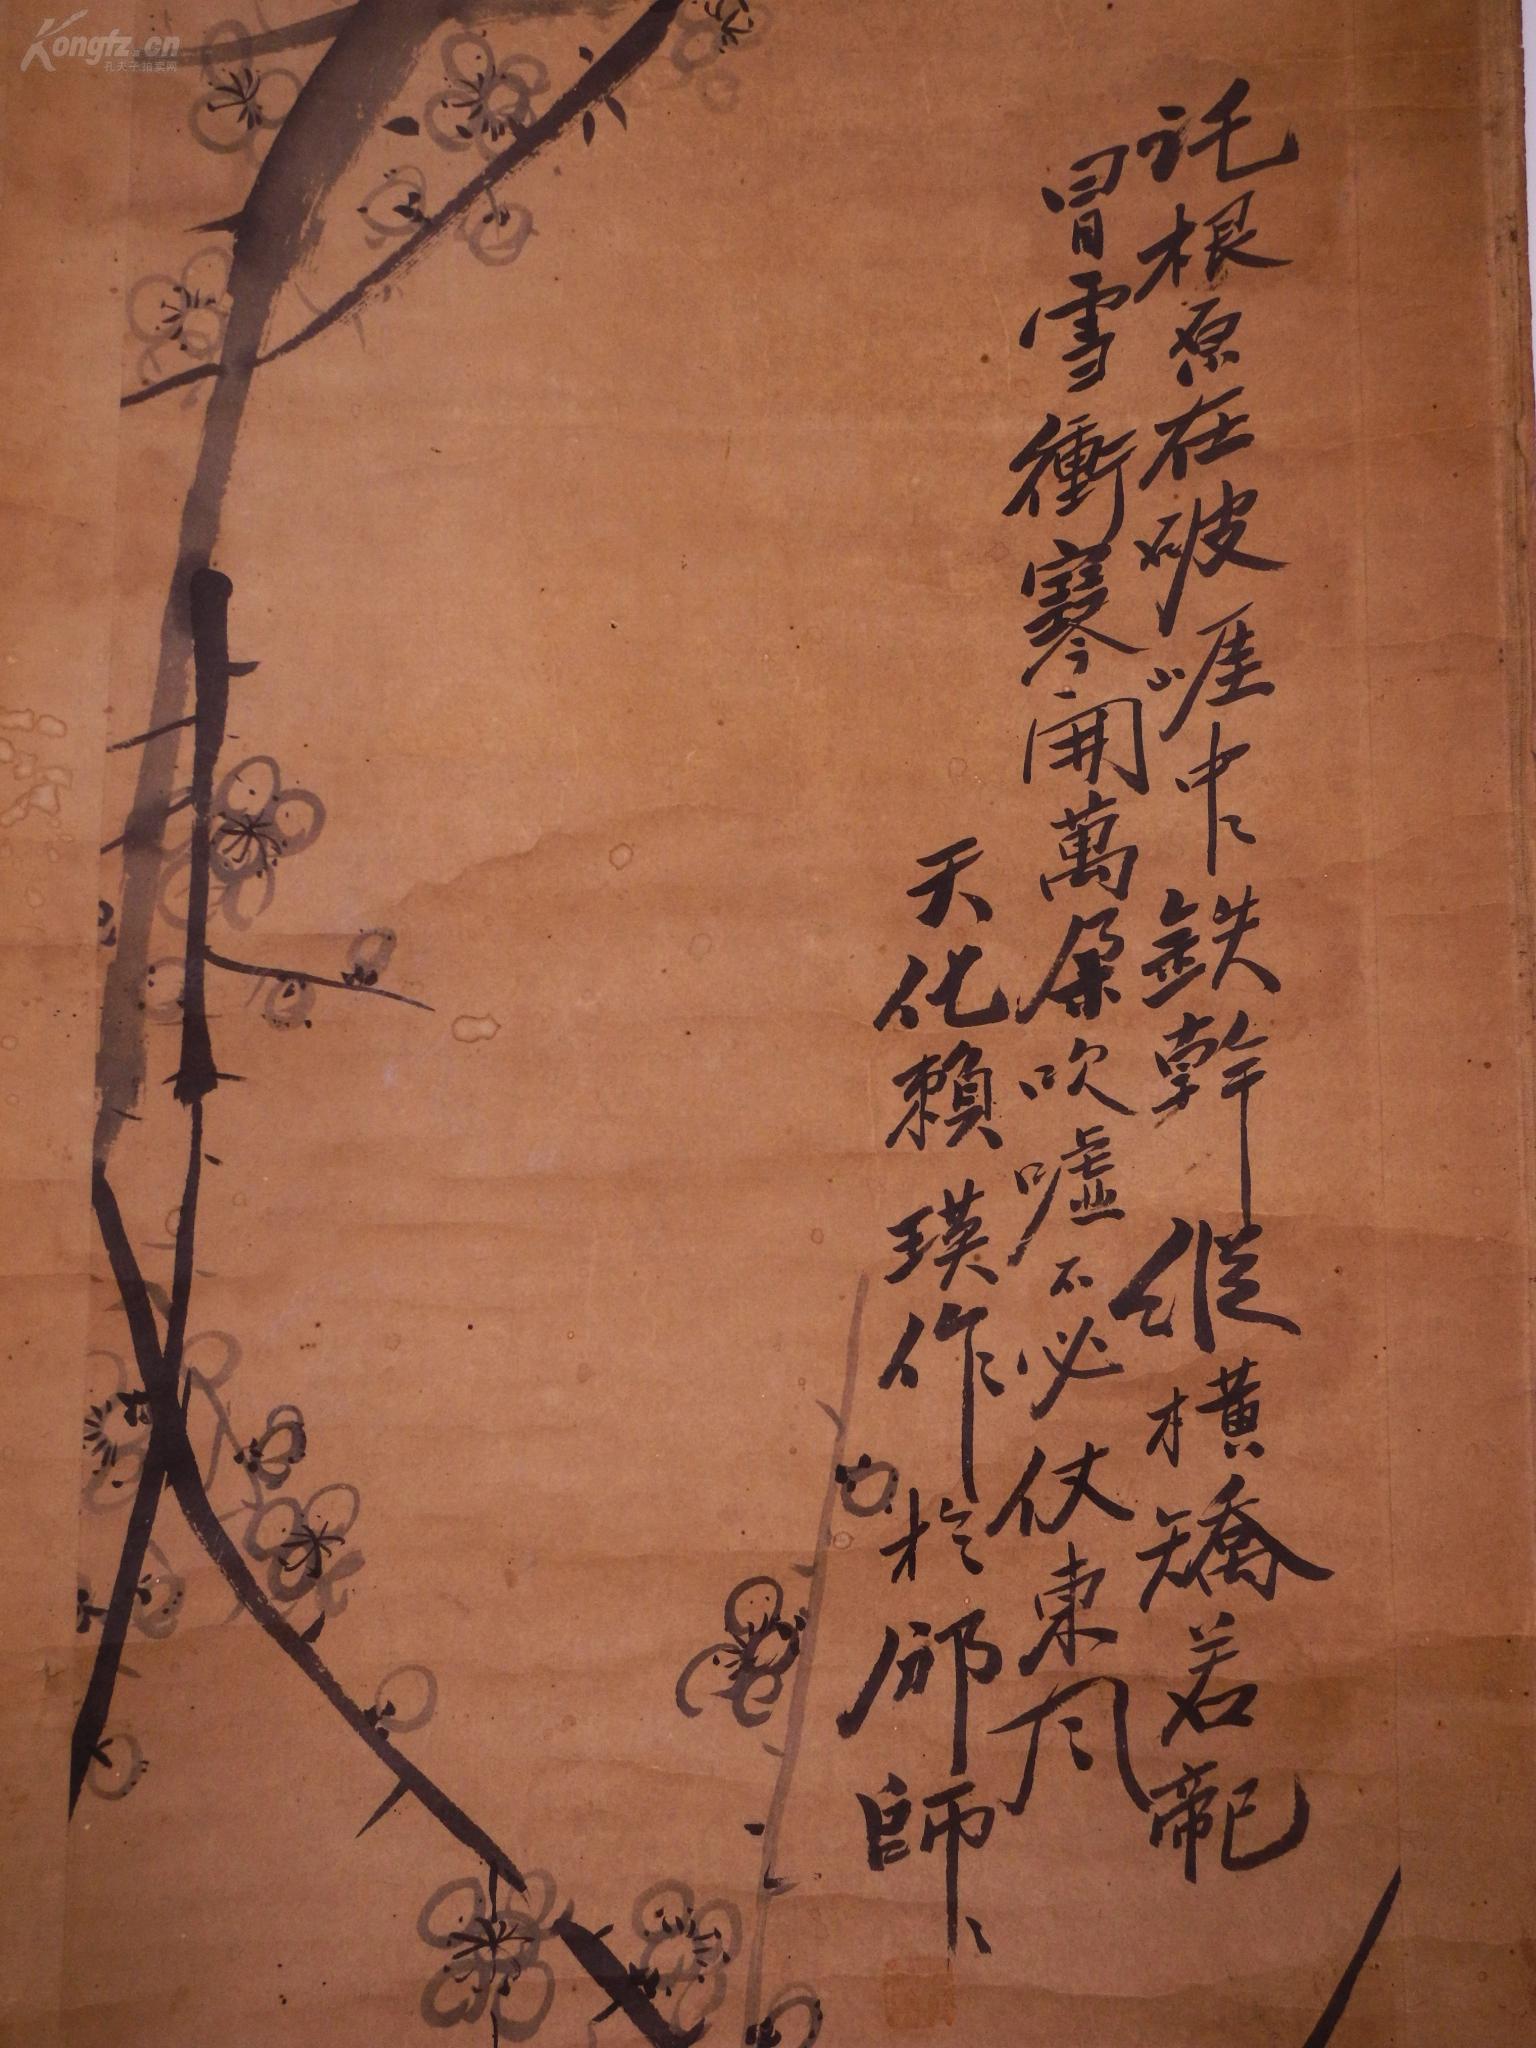 託根原在破崕中鉄幹縱橫矯若龍
冒雪衝寒開萬朶吹嘘不必仗東風
天化賴瑛作於邱師
Kongfz.cn
孔夫子拍卖网